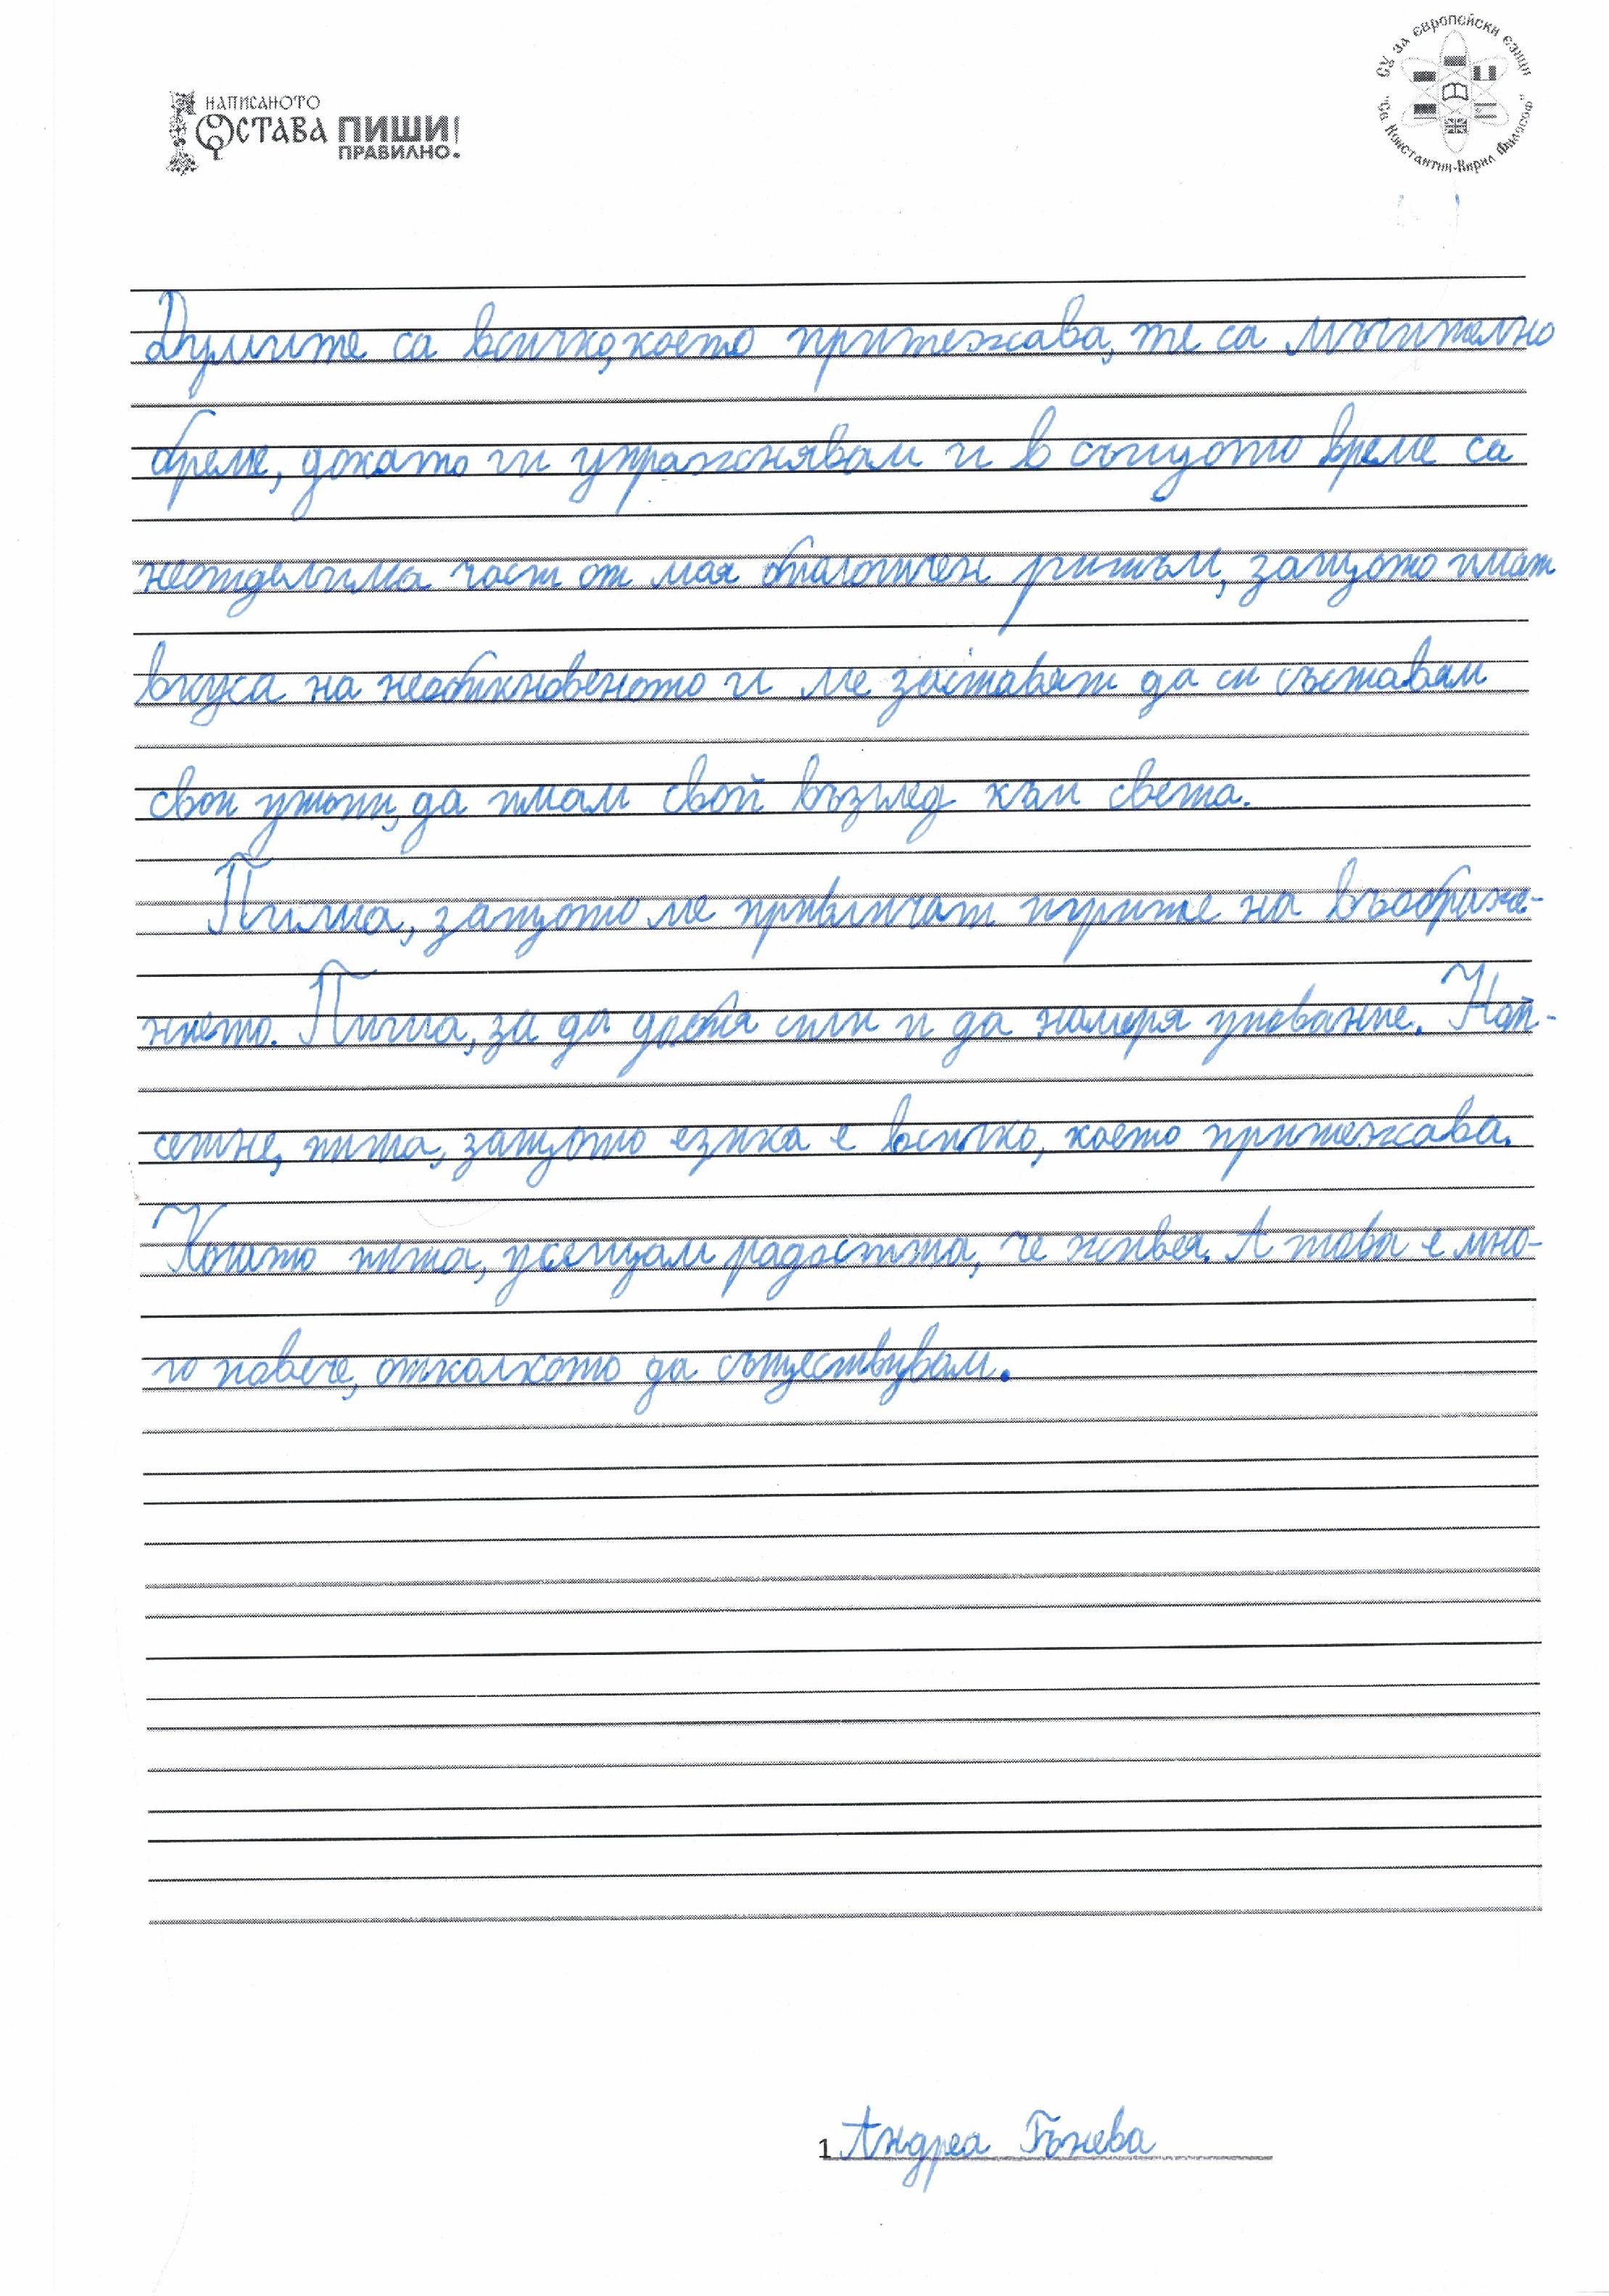 НАПИСАНОТО
ОСТАВА ПИШИ
ПРАВИЛНО!
СУ за европейски езици
"Св. Константин-Кирил Философ"
Думите са всичко, което притежава, те са мъчително
бреме, докато ги упражнявам и в същото време са
неотделима част от моя биологичен ритъм, защото имат
вкуса на необикновеното и ме заставят да си съставям
свои утопии, да имам свой възглед към света.
Пиша, защото ме привличат игрите на въображе-
нието. Пиша, за да добия сили и да намеря упование. Най-
сетне, пиша, защото езика е всичко, което притежава.
Когато пиша, усещам радостта, че живея. А това е мно-
го повече, отколкото да съществувам.
1 Андреа Бънева